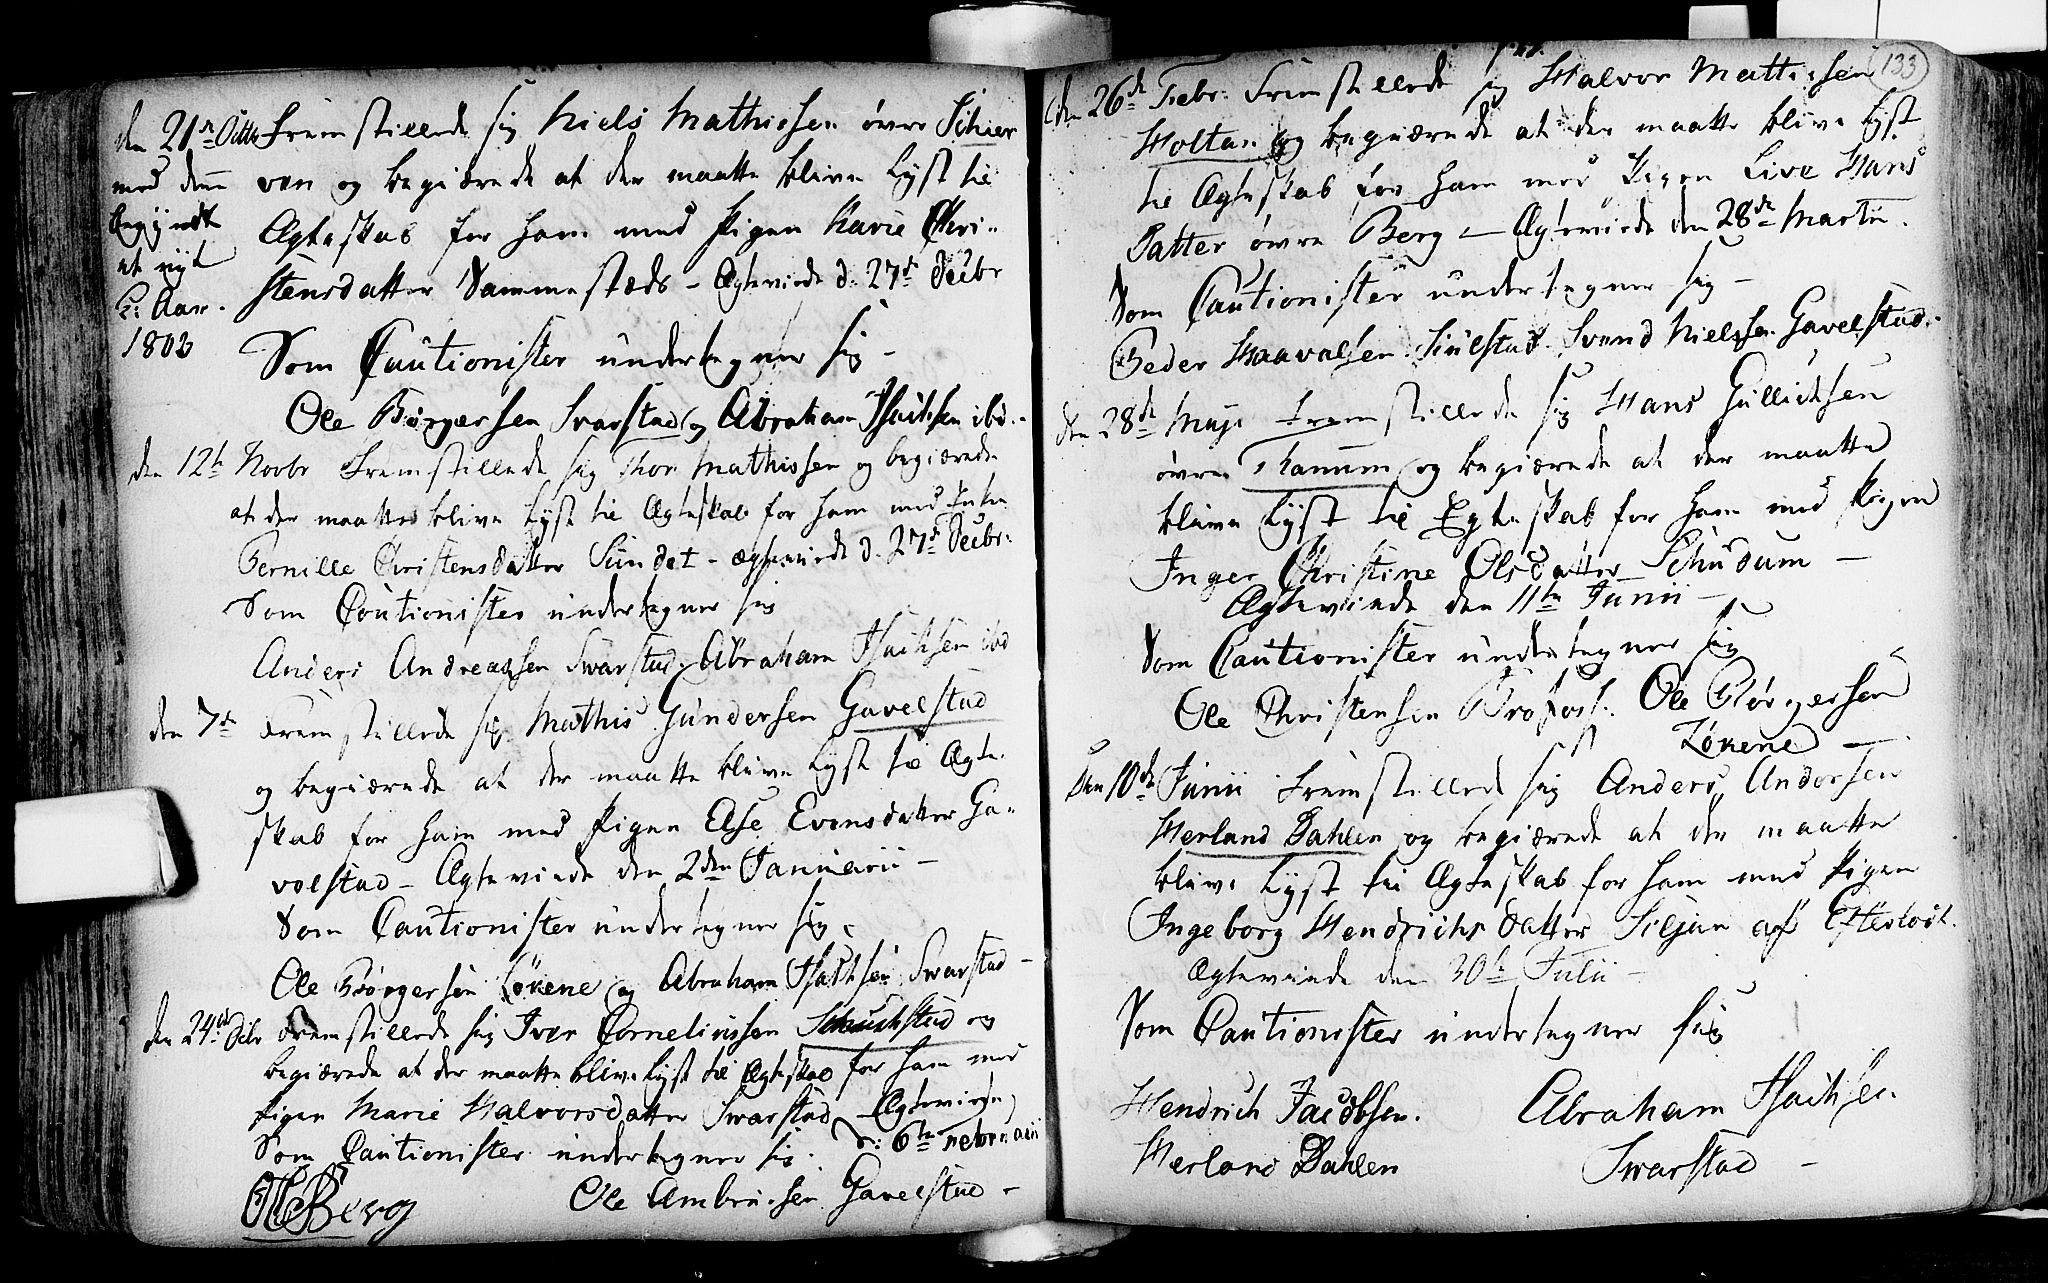 den 21de Octbr Fremstillede sig Niels Mathiesen øvre Schier
med denne ven og begiærede at der maatte blive Lyst til
begyndt Ægteskab for ham med Pigen Karie Chri-
at nyt stensdatter Sammestæds - Ægteviede d: 27de Decbr
K: Aar.
1803 Som Cautionister undertegner sig -
Ole Børgersen Svarstad og Abraham Isachsen ibd.
den 12te Novbr Fremstillede sig Thor Mathissen og begiærede
at der maatte blive Lyst til Ægteskab for ham med Enken
Pernille Christensdatter Sundet - ægteviede d. 27de Decbr:
Som Cautionister undertegner sig
Anders Andreassen Svarstad, Abraham Isachsen ibd
den 7de Fremstillede sig Mathis Gundersen Gavelstad
og begiærede at der maatte blive Lyst til Ægte-
skab for ham med Pigen Else Evensdatter Ga-
velstad - Ægteviede den 2den Januarii -
Som Cautionister undertegner sig
Ole Børgersen Løkene og Abraham Isachsen Swarstad -
den 24de Dcbr Fremstillede sig Iver Corneliussen og
begiærede at der maatte blive Lyst til Ægteskab for ham med
Pigen Marie Halvorsdatter Swarstad Ægteviede
Som Cautionister undertegner sig. d: 6te Februarii
Berg Ole Ambrosen Gavelstad -
133
den 26de Febr: Fremstillede sig Halvor Mattisen
Holtan og begiærede at der maatte blive Lyst
til Ægteskab for ham med Pigen Live Hans
Datter øvre Berg - Ægteviede den 28de Martii.
Som Cautionister undertegner sig -
Peder Haavalsen Siulstad Svend Nielssen Gavelstad.
den 28de Maji Fremstillede sig Hans Gullichsen
øvre Thanum og begiærede at der maatte
blive Lyst til Egteskab for ham med Pigen
Inger Christine Olsdatter Schudum -
Ægteviede den 11te Junii -
Som Cautionister undertegner sig
Ole Christensen Brofoss. Ole Børgersen
Løkene -
Den 10de Junii Fremstillede sig Anders Andersen
Herland Dahlen og begiærede at der maatte
blive Lyst til Ægteskab for ham med Pigen
Ingeborg Hendrichs Datter Siljan af Efterlødt.
Ægteviede den 30te Julii -
Som Cautionister undertegner sig
Hendrich Jacobsen. Abraham Isachsen.
Herland Dahlen Swarstad -